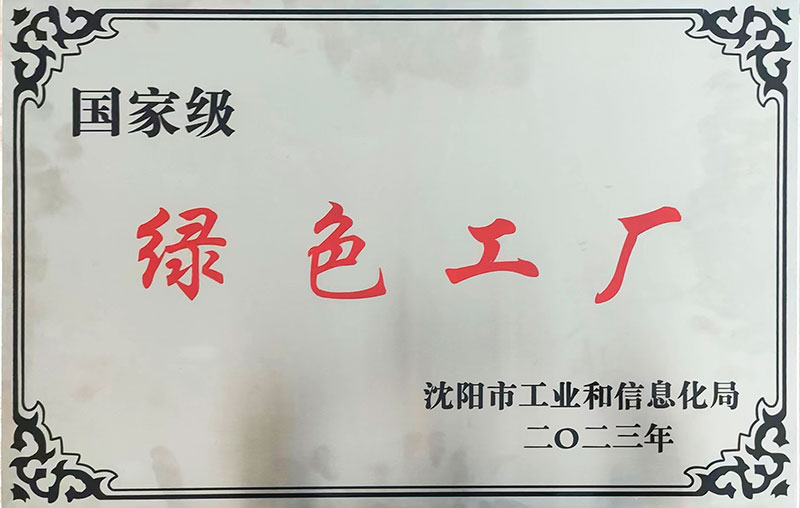 国家级
绿色工厂
沈阳市工业和信息化局
二〇二三年